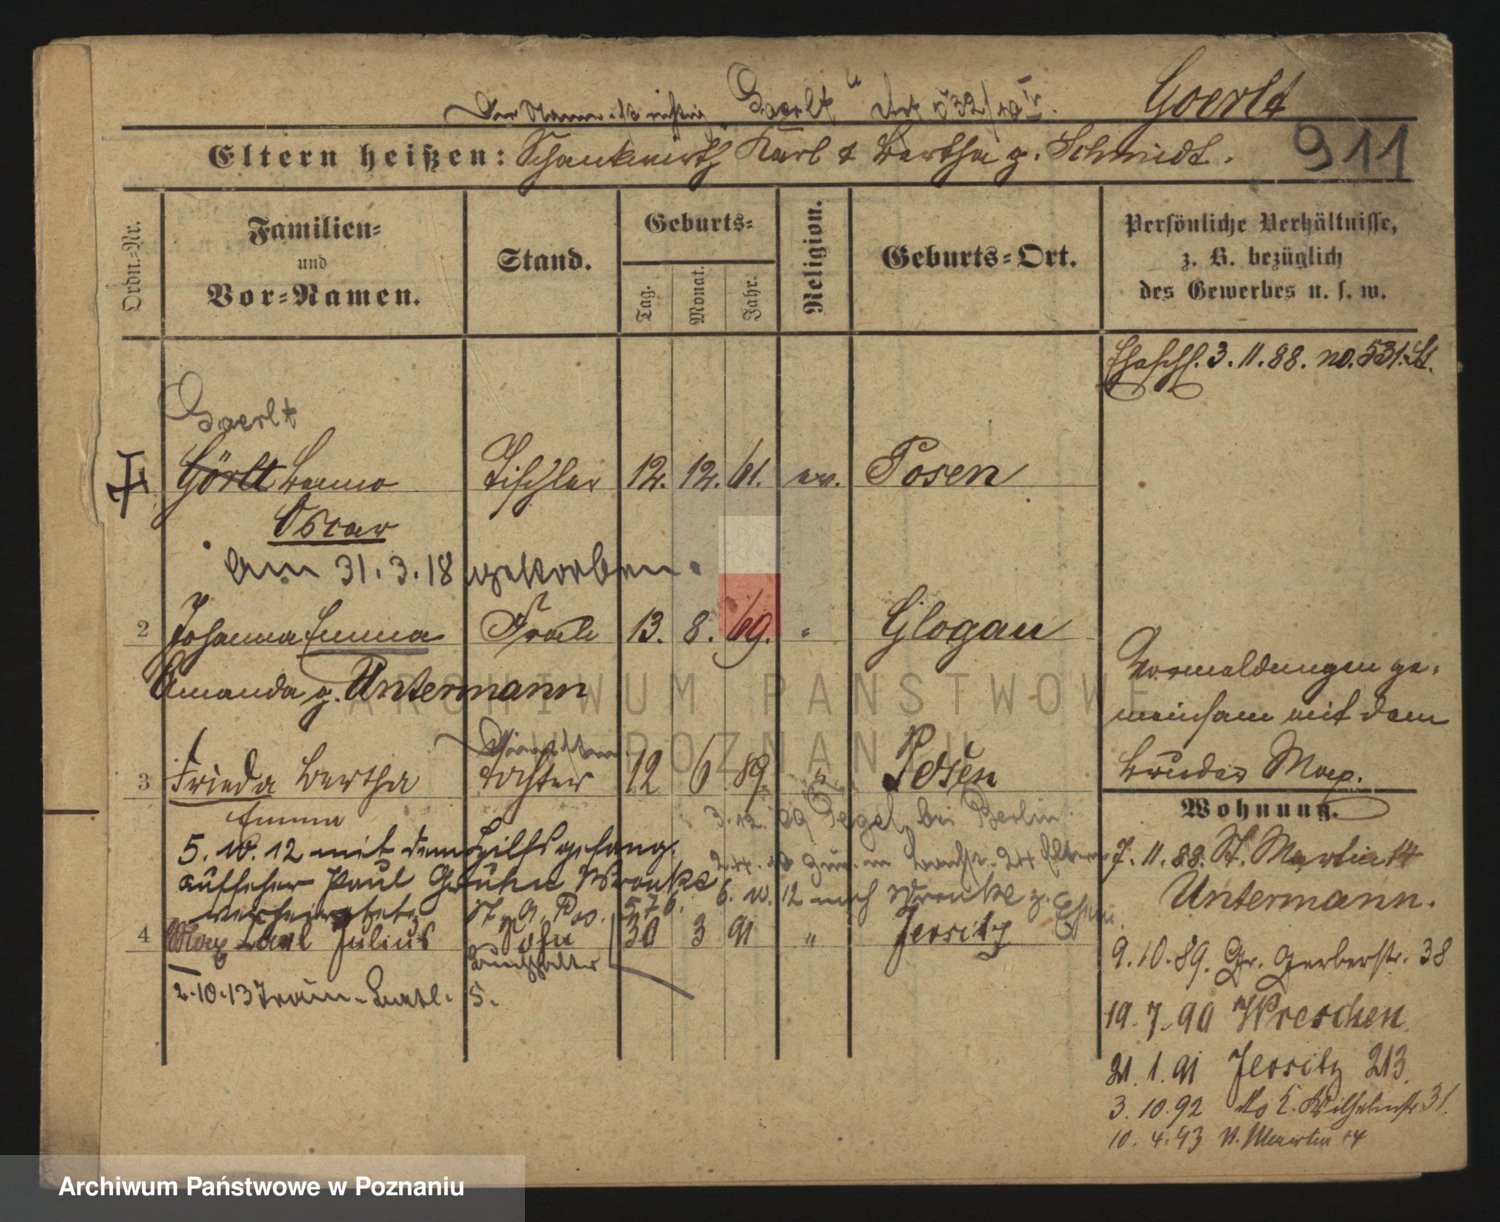 Der Name ist richtig „Goerlt“
Goerlt
Eltern heißen: Schankwirth Karl & Bertha g. Schmidt.
911
Ordn.-Nr.
Familien-
und
Vor-Namen.
Stand.
Geburts-
Tag.
Monat.
Jahr.
Religion.
Geburts-Ort.
Persönliche Verhältnisse,
z. B. bezüglich
des Gewerbes u. s. w.
Eheschl. 3.11.88. no. 531. St.
Goerlt
Görlt Benno Tischler 12. 12. 61. ev. Posen
Oscar
am 31.3.18 gestorben.
2 Johanna Emma Frau 13. 8. 69. " Glogau
Amanda g. Untermann
Vormeldungen ge-
meinsam mit dem
Bruder Max.
3 Frieda Bertha Tochter 12 6 89. " Posen
Emma
Wohnung.
3.12.09 Tegel bei Berlin
5.10.12 mit dem Hilfsgefang.
aufseher Paul Grühn Wronke
verheiratet, St. A. Pos. 576.
6.10.12 nach Wronke z. Ehem.
4 Max Karl Julius Sohn 30 3 91 " Jersitz
Buchhalter
2.10.13 Train-Batl. 5.
7.11.88. St. Martin 14
Untermann.
9.10.89. Gr. Gerberstr. 38
19.7.90 Wreschen
21.1.91 Jersitz 213.
3.10.92 do K. Wilhelmstr. 31
10.4.93 St. Martin 14
ARCHIWUM PAŃSTWOWE
W POZNANIU
Archiwum Państwowe w Poznaniu